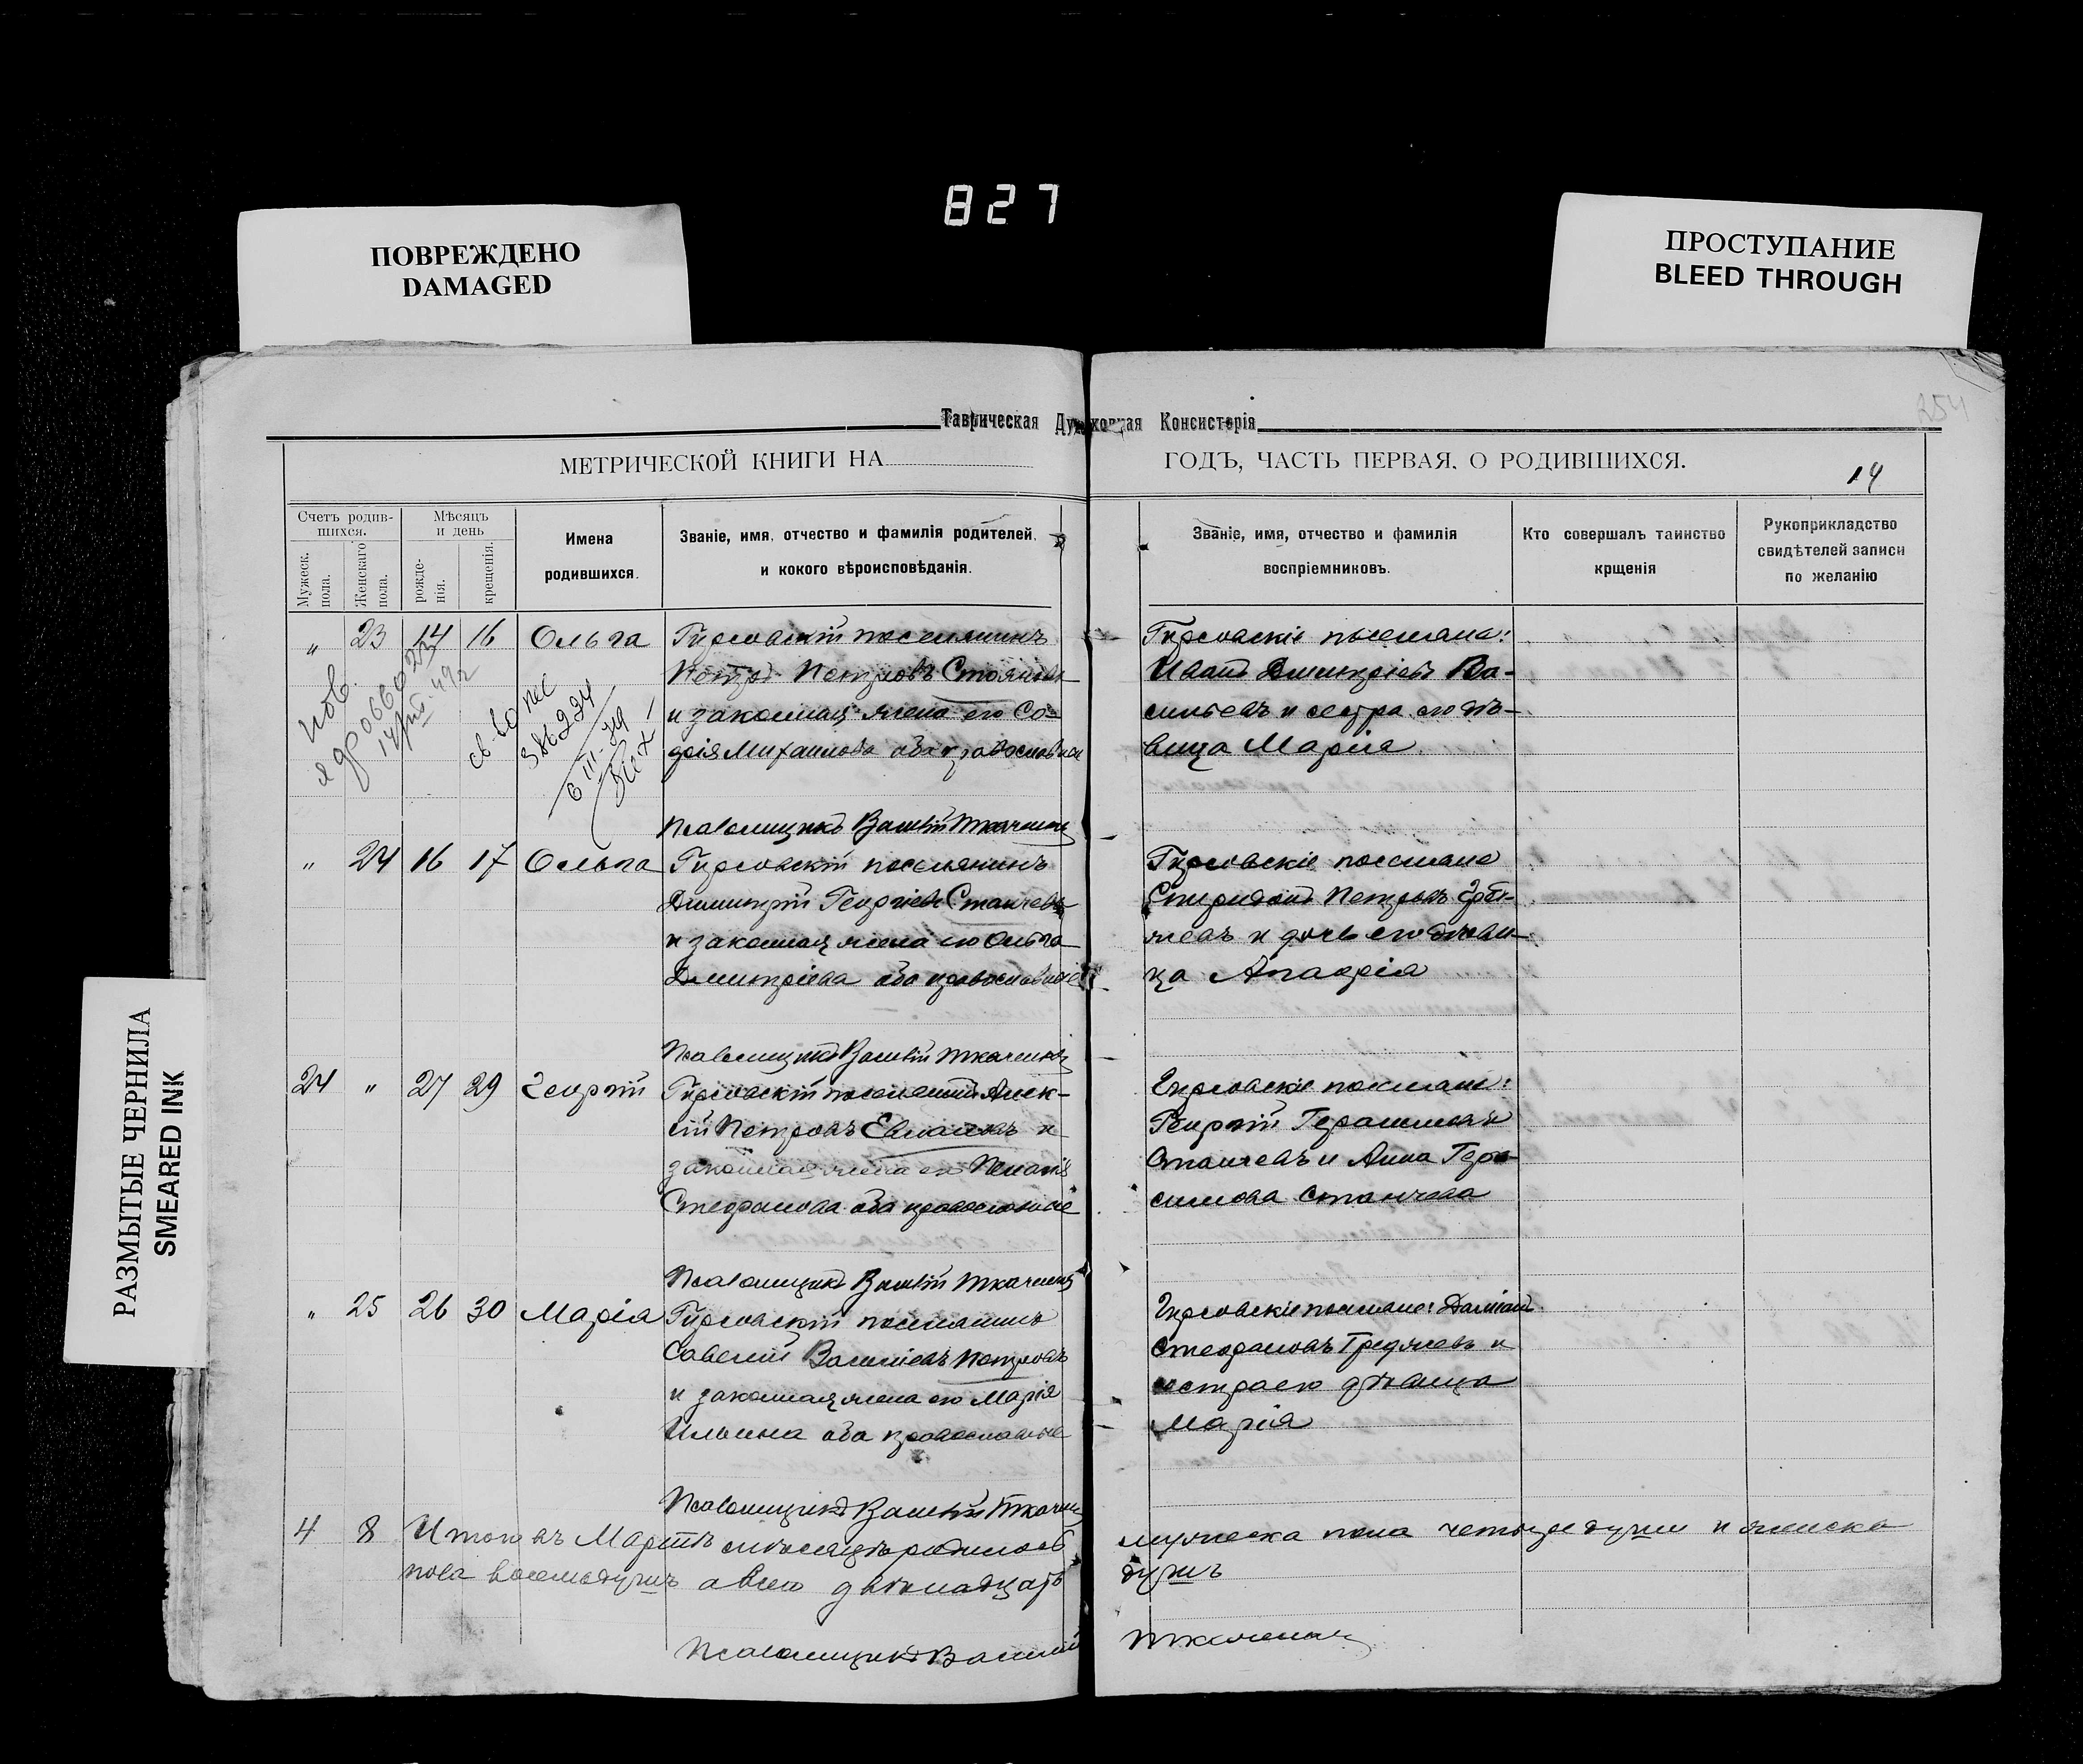 827
ПОВРЕЖДЕНО
DAMAGED
ПРОСТУПАНИЕ
BLEED THROUGH
РАЗМЫТЫЕ ЧЕРНИЛА
SMEARED INK
254
Таврическая Духовная Консисторія
МЕТРИЧЕСКОЙ КНИГИ НА
ГОДЪ, ЧАСТЬ ПЕРВАЯ, О РОДИВШИХСЯ.
14
Счетъ родив-
шихся.
Мужеск. пола.
Женскаго пола.
Мѣсяцъ
и день
рожде-
нія.
крещенія.
Имена
родившихся.
Званіе, имя, отчество и фамилія родителей,
и кокого вѣроисповѣданія.
Званіе, имя, отчество и фамилія
воспріемниковъ.
Кто совершалъ таинство
крщенія
Рукоприкладство
свидѣтелей записи
по желанію
" 23 14 16 Ольга
Гирсовскій поселянинъ
Петръ Петровъ Стояновъ
и законная жена его Со-
фія Михаилова оба православные
Псаломщикъ Василій Ткаченко
Гирсовскіе поселяне:
Иванъ Димитріевъ Ва-
сильевъ и сестра его дѣ-
вица Марія
" 24 16 17 Ольга
Гирсовскій поселянинъ
Димитрій Георгіевъ Станчевъ
и законная жена его Ольга
Димитріева оба православные
Псаломщикъ Василій Ткаченко
Гирсовскіе поселяне
Спиридонъ Петровъ
и дочь его дѣви-
ца Агафія
24 " 27 29 Георгій
Гирсовскій поселянинъ Алек-
сій Петровъ и
законная жена его Пелагія
Стефанова оба православные
Псаломщикъ Василій Ткаченко
Гирсовскіе поселяне:
Георгій Герасимовъ
Станчевъ и Анна Гера-
симова Станчева
" 25 26 30 Марія
Гирсовскій поселянинъ
Савелій Василіевъ Петровъ
и законная жена его Марія
Ильина оба православные
Псаломщикъ Василій Ткаченко
Гирсовскіе поселяне: Даміанъ
Стефановъ и
сестра его дѣвица
Марія
4 8 Итого въ Мартѣ мѣсяцѣ родилось мужеска пола четыре души и женска
пола восемь душъ а всего двѣнадцать душъ
Псаломщикъ Василій Ткаченко